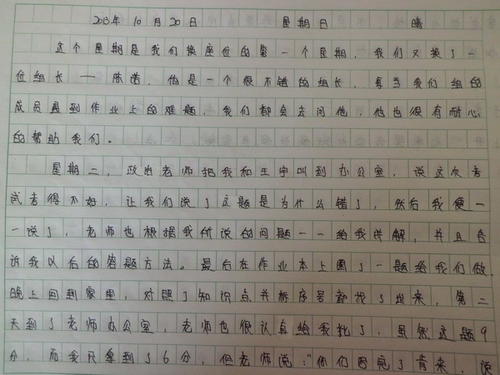 2013年10月20日 星期日 晴
这个星期是我们换座位的第一个星期，我们又换了一
位组长——陈蕾，他是一个很不错的组长，每当我们组的
成员遇到作业上的难题，我们都会去问他，他也很有耐心
的帮助我们。
星期二，政治老师把我和王宇叫到办公室，说这次考
试考得不好，让我们说了这题是为什么错了，然后我便一
一说了，老师也根据我所说的问题一一给我讲解，并且告
诉我以后的答题方法。最后在作业本上圈了一题给我们做
晚上回到家里，对照了知识点并标序号都找了出来，第二
天到了老师办公室，老师也很认真给我批了，虽然这题9
分，而我只拿到了6分，但老师说："你们图完了背来，说